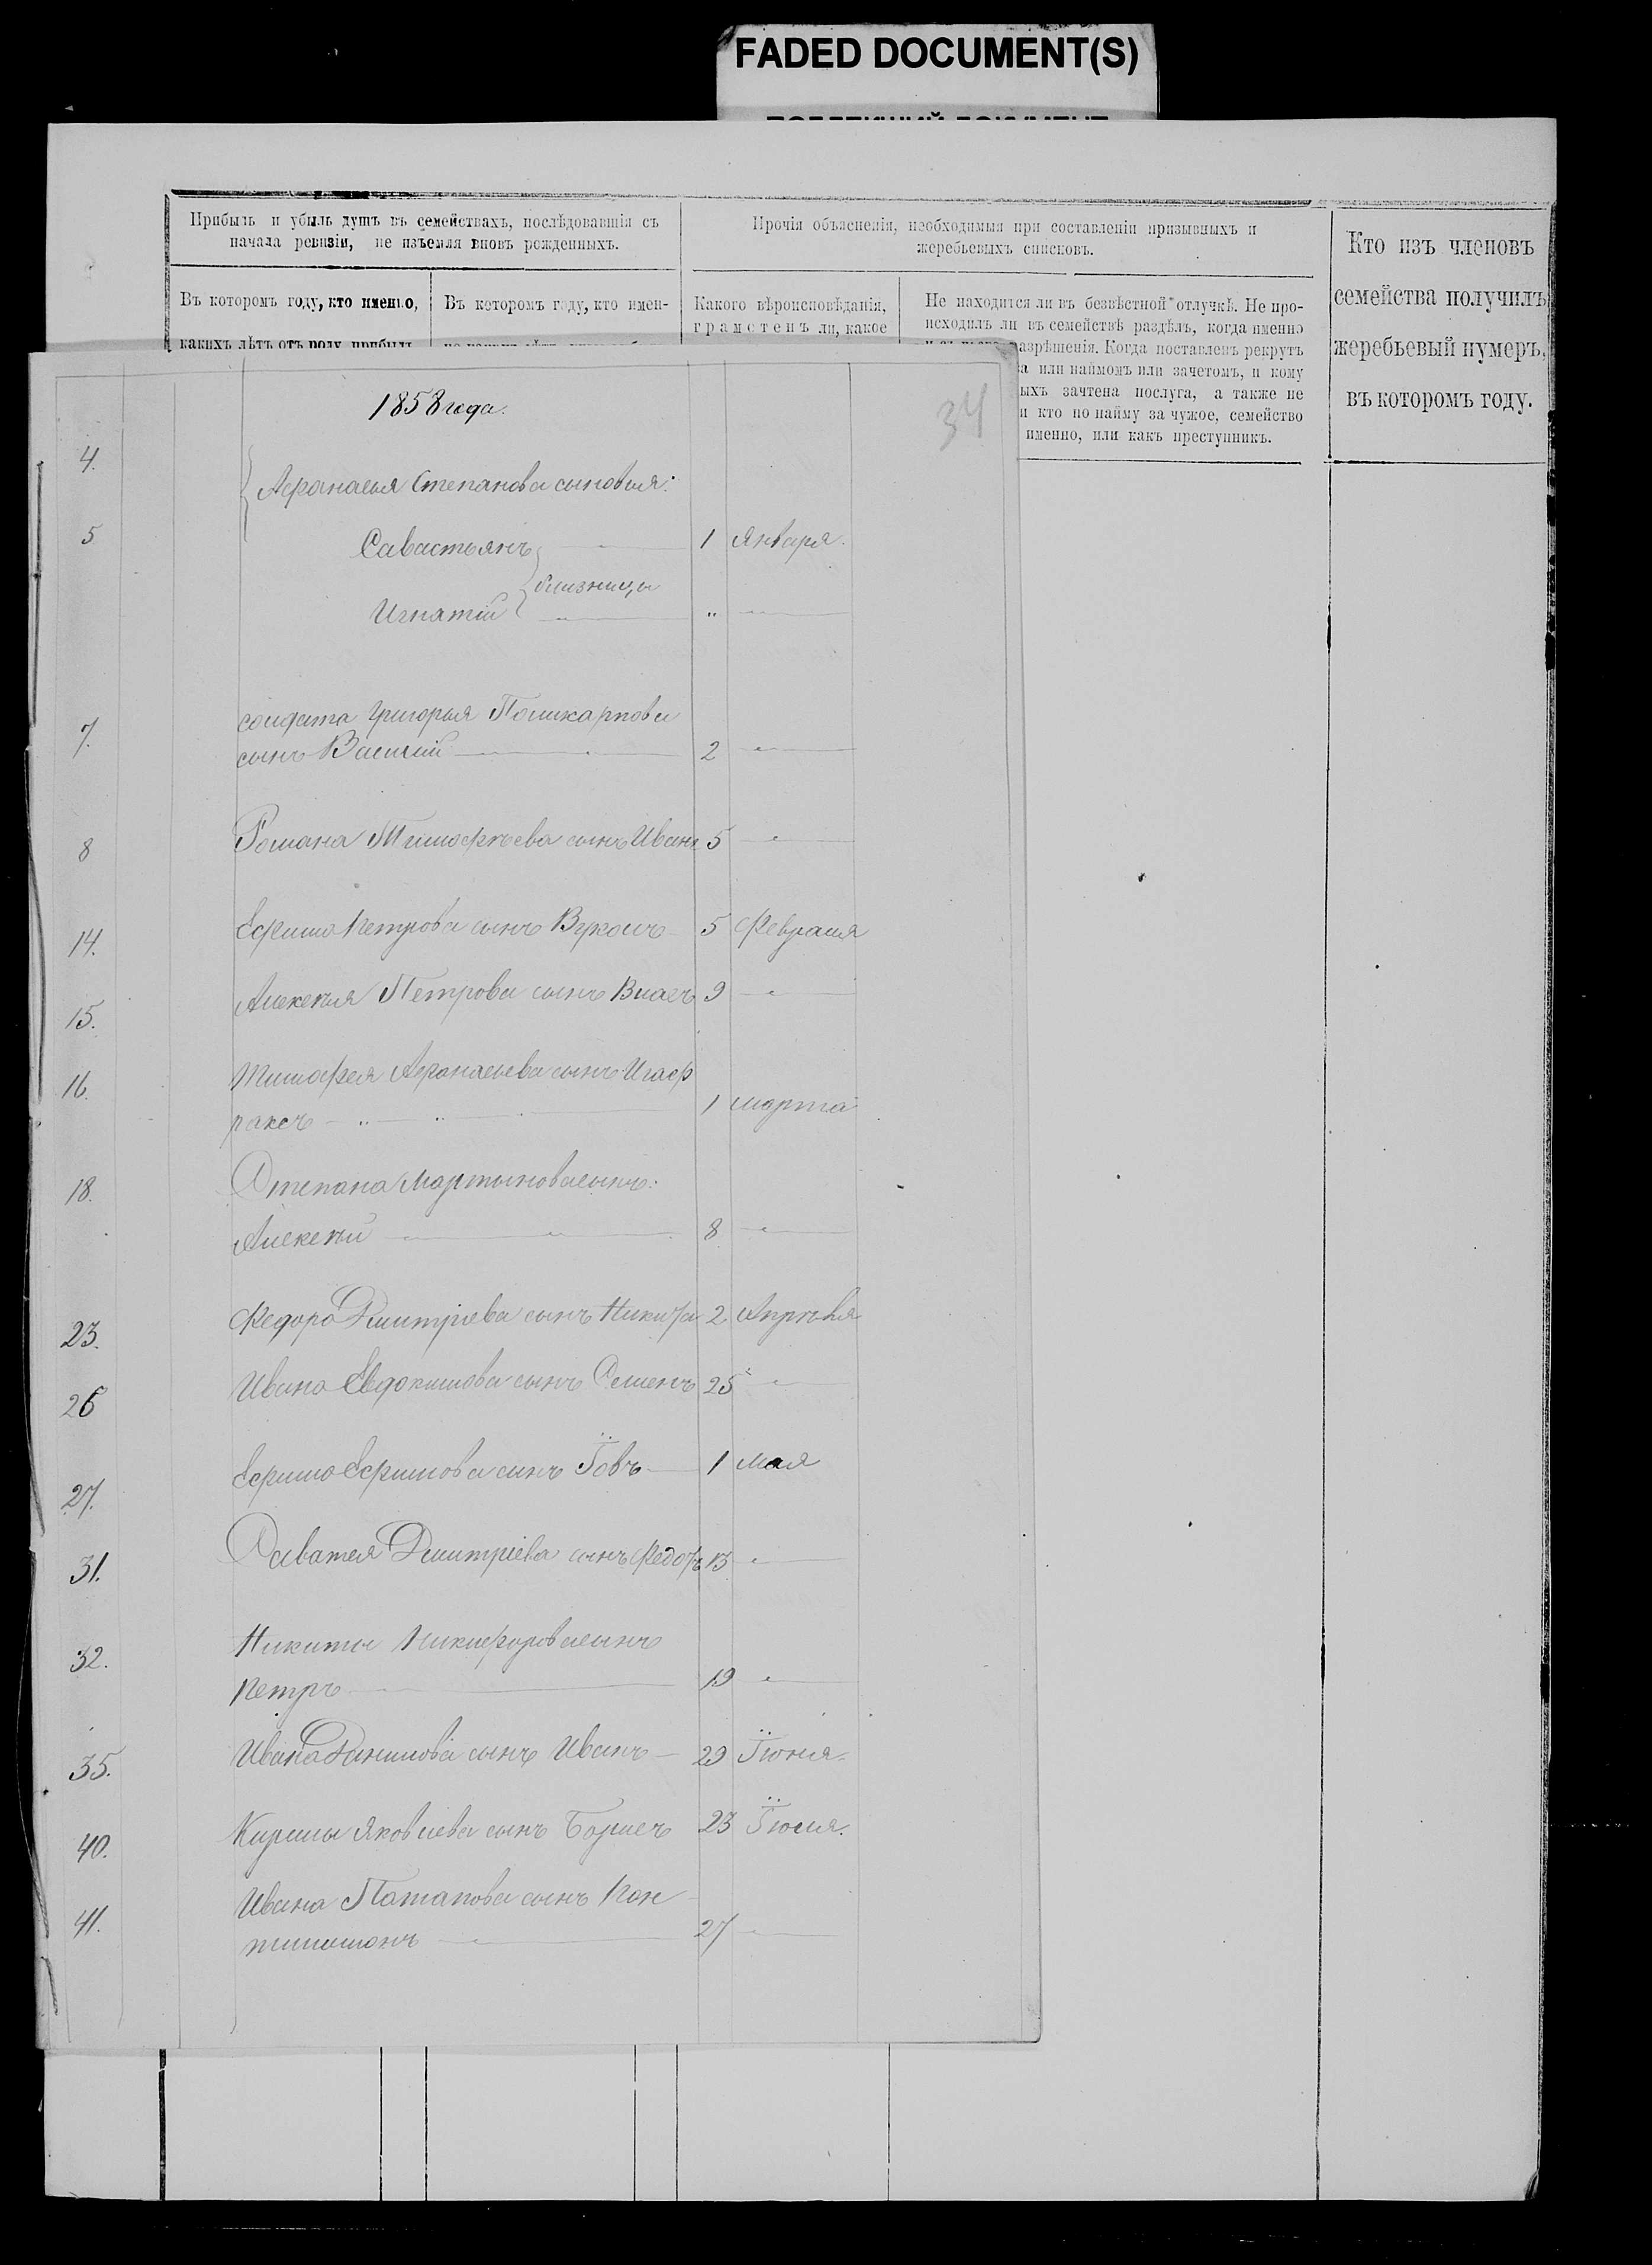 FADED DOCUMENT(S)
Прибыль и убыль душъ въ семействахъ, послѣдовавшія съ
начала ревизіи, не изъемля вновь рожденныхъ.
Прочія объясненія, необходимыя при составленіи призывныхъ и
жеребьевыхъ списковъ.
Кто изъ членовъ
семейства получилъ
жеребьевый нумеръ,
въ которомъ году.
Въ которомъ году, кто именно,
какихъ лѣтъ отъ роду прибылъ
Въ которомъ году, кто имен-
Какого вѣроисповѣданія,
грамотенъ ли, какое
Не находится ли въ безвѣстной отлучкѣ. Не про-
исходилъ ли въ семействѣ раздѣлъ, когда именно
разрѣшенія. Когда поставленъ рекрутъ
или наймомъ или зачетомъ, и кому
ыхъ зачтена послуга, а также не
и кто по найму за чужое, семейство
именно, или какъ преступникъ.
34
1858 года.
4.
Афанасья Степанова сыновья:
5 Савастьянъ 1 Января.
близнецы
Игнатій " "
7. солдата Григорья Поликарпова
сынъ Василій 2 "
8 Романа Тимофѣева сынъ Иванъ 5 "
14. Ефима Петрова сынъ Вуколъ 5 Февраля
15. Алексѣя Петрова сынъ Власъ 9 "
16. Тимофея Афанасьева сынъ Игаф
раксъ 1 марта
18. Степана Мартынова сынъ:
Алексѣй 8 "
23. Федора Дмитріева сынъ Никита 2 Апрѣля
26 Ивана Евдокимова сынъ Семенъ 25 "
27. Ефима Ефимова сынъ Іовъ 1 мая
31. Саватея Дмитріева сынъ Федотъ 13 "
32. Никиты Никифорова сынъ
Петръ 19 "
35. Ивана Данилова сынъ Иванъ 29 Іюня.
40. Кирилы Яковлева сынъ Борисъ 23 Іюля.
41. Ивана Потапова сынъ Пан
тилимонъ 27 "